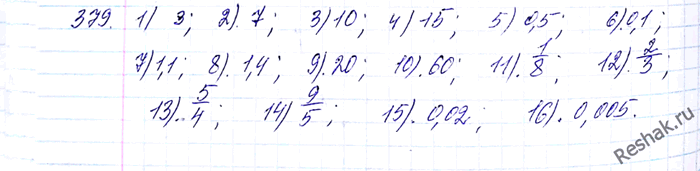 379. 1) 3; 2). 7; 3) 10; 4) 15; 5) 0,5; 6). 0,1;
7) 1,1; 8). 1,4; 9). 20; 10). 60; 11). 1/8; 12). 2/3;
13). 5/4; 14) 9/5; 15). 0,02; 16). 0,005.
Reshak.ru